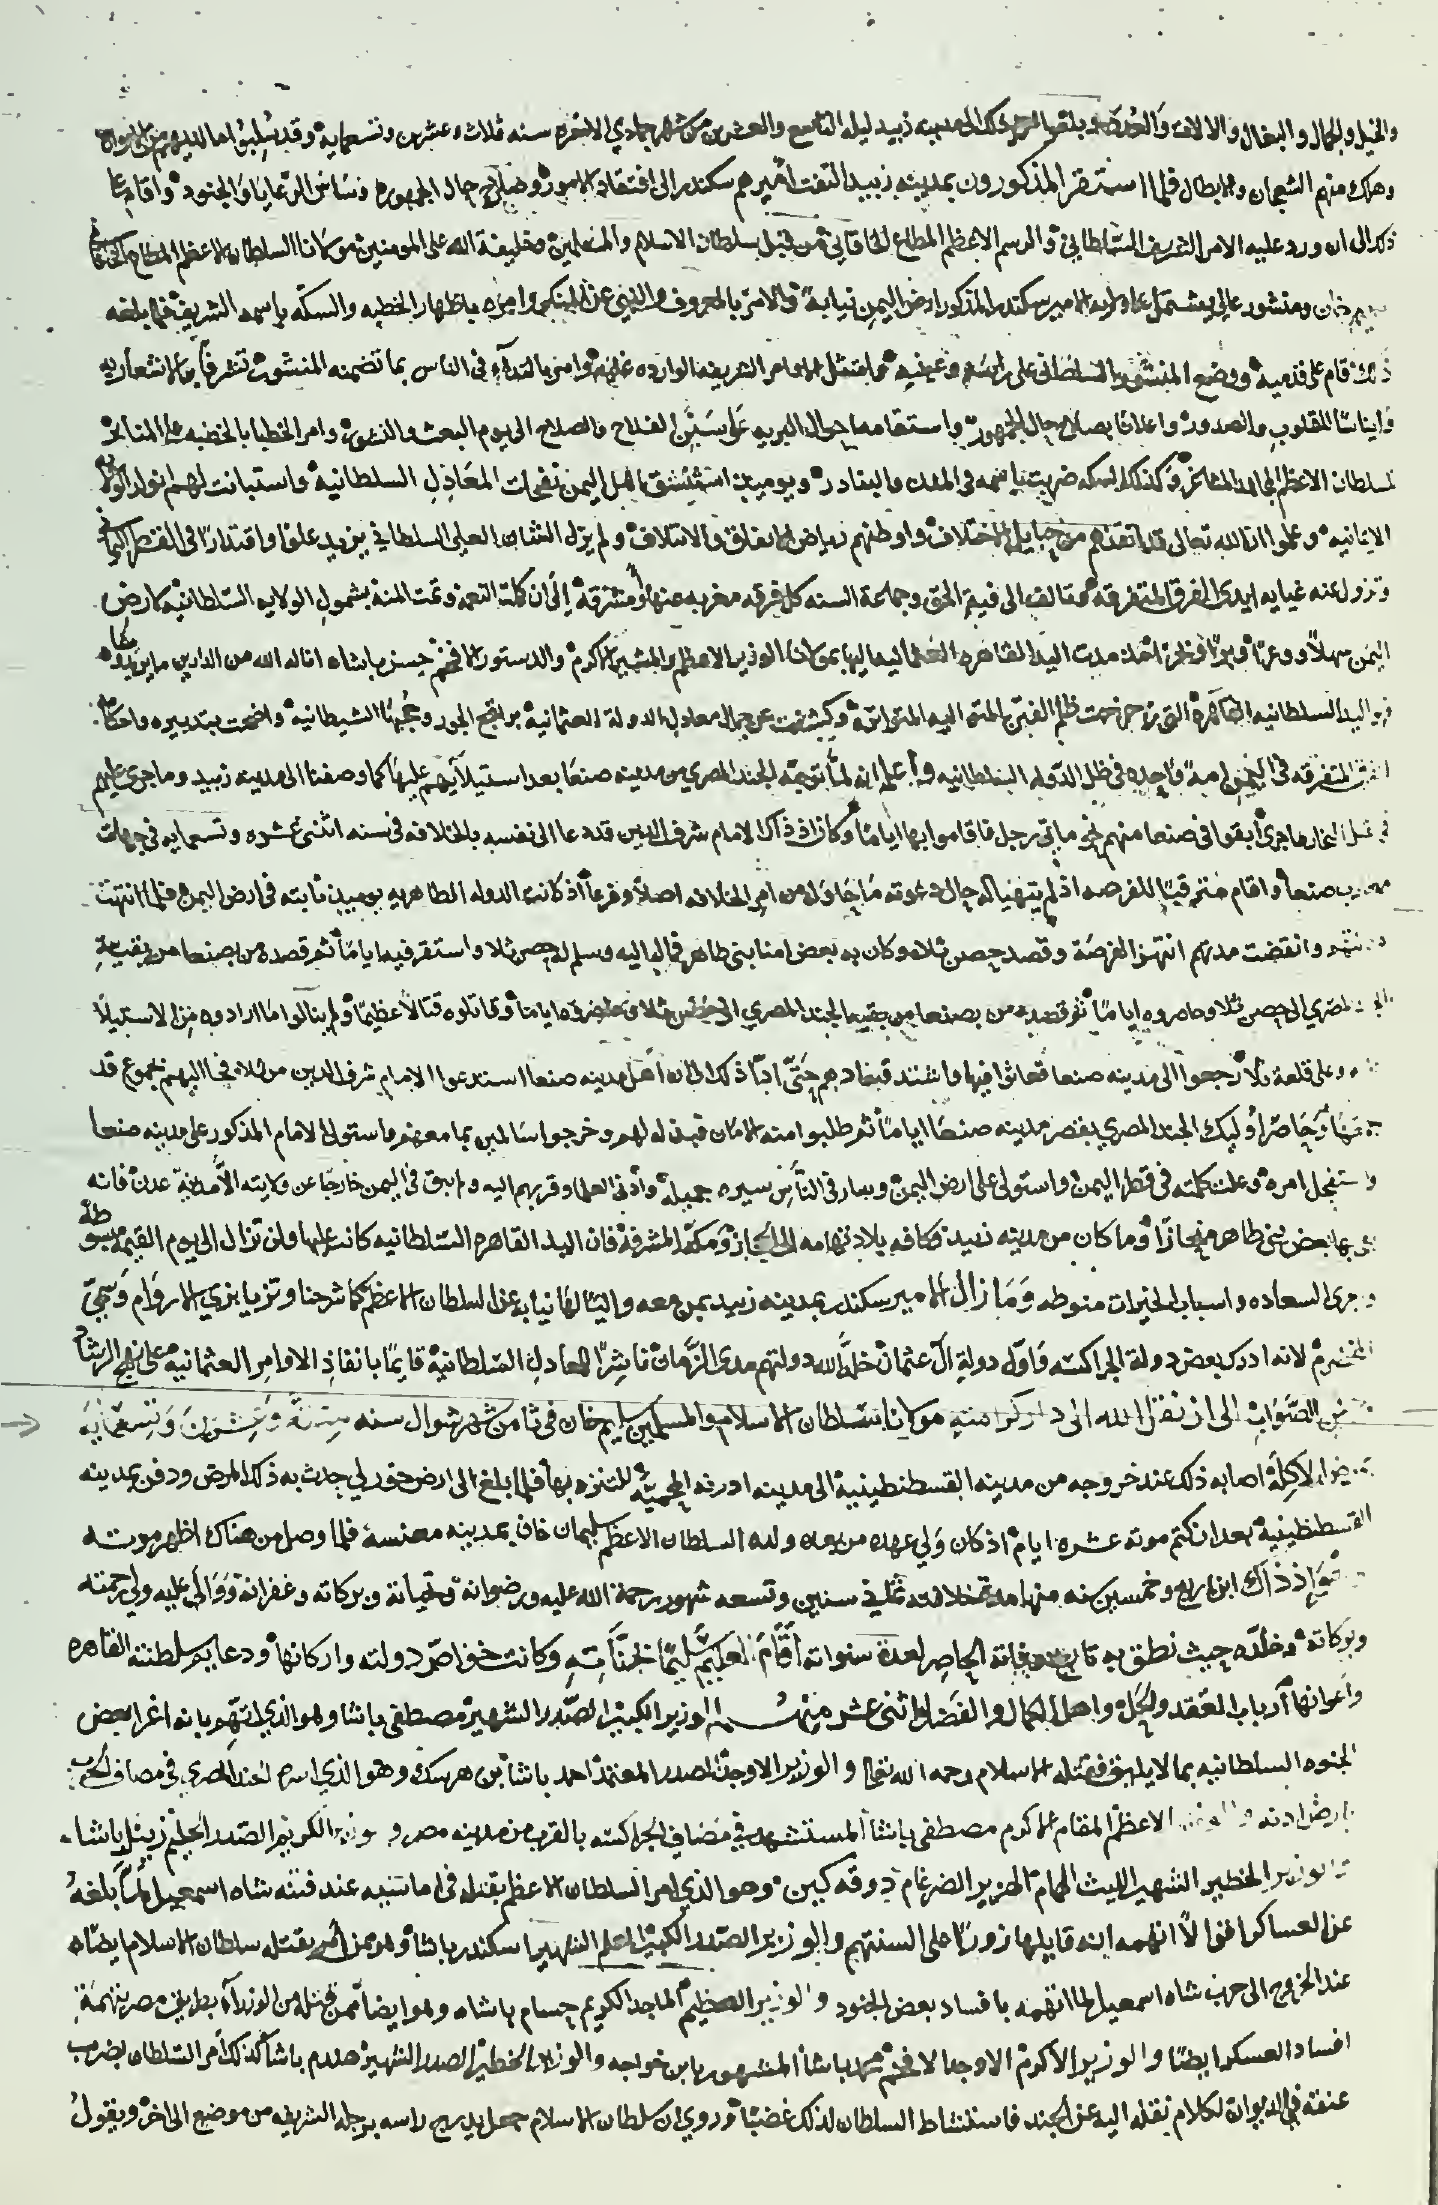 والخيل والجمال والبغال والالات والعدد بلغوا بعد ذلك الى مدينه زبيد ليله التاسع والعشرين من شهر جمادي الاخره سنه ثلاث وعشرين وتسعمايه وقد سلبوا ما لديهم من
وهلك منهم الشجعان والابطال فلما استقر المذكورون بمدينه زبيد التفت اميرهم سكندر الى افتقاد الامور وصلاح حال الجمهور وساس الرعايا والجنود واقام على
ذلك الى ان ورد عليه الامر الشريف السلطاني والرسم الاعظم المطاع الخاقاني من قبل سلطان الاسلام والمسلمين وخليفة الله على المومنين مولانا السلطان الاعظم المطاع
سليم خان ومنشور عالي يشتمل على ولايه الامير سكندر المذكور ارض اليمن نيابة والامر بالمعروف والنهي عن المنكر وامره باظهار الخطبه والسكه باسمه الشريف فلما بلغه
ذلك قام على قدميه ووضع المنشور السلطاني على راسه وعينيه وامتثل الاوامر الشريفه الوارده عليه وامر بالنداء في الناس بما تضمنه المنشور
وايناسا للقلوب والصدور واعلانا بصلاح حال الجمهور واستقامه احوال البريه على سنن الفلاح والصلاح الى يوم البعث والنشور وامر الخطبا بالخطبه على المنابر
لسلطان الاعظم وكذلك السكه ضربت باسمه في المدن والبنادر ويوميذ استنشق اهل اليمن نفحات المعادل السلطانيه واستبانت لهم انوار
وعلموا ان الله تعالى قد انقذهم من حبايل الاختلاف واوطنهم رياض الاتفاق والايتلاف ولم يزل الشان العلي السلطاني يزيد علوا واقتدارا في القطر اليماني
وتزول عنه ايدي الفرق المتفرقه وتالف الى فية الحق وجماعة السنه كل فرقه مغربه عنها او مشرقة الى ان كملت النعمه وتمت المنه بشمول الولايه السلطانيه لارض
اليمن سهلا ووعرا وبرا وبحرا مولانا الوزير الاعظم والمشير الاكرم والدستور الافخم حسن باشاه اناله الله من الدارين ما يريد
وكشفت عن جمال معادل الدولة العثمانيه براقع الجور وحجبها الشيطانيه واضحت بتدبيره واحكامه
الفرق المتفرقه في اليمن امة واحده في ظل الدوله السلطانيه واعلم انه لما توجه الجند المصري من مدينه صنعا بعد استيلايهم عليها كما وصفنا الى مدينه زبيد وما جرى عليهم
ما جرى ابقوا في صنعا منهم نحو مايتي رجل فاقاموا بها اياما وكان اذ ذاك الامام شرف الدين قد دعا الى نفسه بالخلافه في سنه اثنتي عشره وتسعمايه في جهات
صنعا واقام مترقبا للفرصه اذ لم يتهيا له حال دعوته ما حاوله من امر الخلافه اصلا وفرعا اذ كانت الدوله الطاهريه يوميذ ثابته في ارض اليمن فلما انتهت
وانقضت مدتهم انتهز الفرصة وقصد حصن ثلا وكان به بعض امنا بني طاهر فمال اليه وسلم له حصن ثلا واستقر فيه اياما ثم قصده من بصنعا من بقية
الجند المصري الى حصن ثلا وحاصروه اياما وقاتلوه قتالا عظيما ولم ينالوا ما ارادوه من الاستيلا
وعلى قلعة ثلا رجعوا الى مدينه صنعا فعاثوا فيها واشتد فسادهم حتى ادا ذلك الى ان اهل مدينه صنعا استدعوا الامام شرف الدين من ثلا فجا اليهم بجموع قد
جمعها وحاصر اوليك الجند المصري بقصر مدينه صنعا اياما ثم طلبوا منه الامان فبذله لهم وخرجوا سالمين بما معهم واستولى الامام المذكور على مدينه صنعا
واستفحل امره وعلت كلمته في قطر اليمن واستولى على ارض اليمن وسار في الناس سيره جميله وادنى العلما وقربهم اليه ولم يبق في اليمن خارجا عن ولايته الا مدينة عدن فانه
بقي بها بعض بني طاهر منحازا وما كان من مدينه زبيد وكافه بلاد تهامه الى الحجاز ومكة المشرفة فان اليد القاهره السلطانيه كانت عليها ولن تزال الى يوم القيمه مبسوطة
وعرى السعاده واسباب الخيرات منوطه وما زال الامير سكندر بمدينه زبيد بمن معه واليا لها نيابه عن السلطان الاعظم كما شرحنا وتزيا بزي الاروام وسمي
المخضرم لانه ادرك بعض دولة الجراكسه واول دولة ال عثمان خلد الله دولتهم مدى الزمان ناشرا للمعادل السلطانيه قايما بانفاذ الاوامر العثمانيه على نهج الرشاد
الصواب الى ان نقل الله الى دار كرامته مولانا سلطان الاسلام والمسلمين سليم خان في ثامن شهر شوال سنه ستة وعشرين وتسعماية
الاكلة اصابه ذلك عند خروجه من مدينه القسطنطينية الى مدينه ادرنه المحميه للتنزه بها فلما بلغ الى ارض جورلي حدث به ذلك المرض ودفن بمدينه
القسطنطينية بعد ان كتم موته عشره ايام اذ كان ولي عهده من بعده ولده السلطان الاعظم سليمان خان بمدينه مغنسه فلما وصل من هناك اظهر موته
اذ ذاك ابن اربع وخمسين سنه منها مده خلافته ثماني سنين وتسعه شهور رحمة الله عليه ورضوانه وتحياته وبركاته وغفرانه ووالى عليه ولي رحمته
وبركاته وخلده حيث نطق به تاريخ وفاته الحاصر لعدة سنواته وكانت خواص دولته واركانها ودعايم سلطنته القاهره
واعوانها ارباب العقد والحل واهل الكمال والفضل اثنى عشر منهم الوزير الكبير الصدر الشهير مصطفى باشا وهو الذي اتهم بانه اغرا بعض
الجنود السلطانيه بما لا يليق فقتله الاسلام رحمه الله تعالى والوزير الاوحد الصدر المعتمد احمد باشا بن هرسك وهو الذي اسره الجند المصري في مصاف الحرب
بارض ادنه والوزير الاعظم المقام الاكرم مصطفى باشا المستشهد في مصاف الجراكسه بالقرب من مدينه مصر والوزير الكريم الصدر العظيم زينل باشا
والوزير الخطير الشهير الليث الهمام الهزبر الضرغام دوقه كين وهو الذي امر السلطان الاعظم بقتله في اماسيه عند فتنه شاه اسمعيل لما بلغه
عن العساكر اقوالا اتهمه انه قايلها زورا على السنتهم والوزير الصدر الكبير العلم الشهير اسكندر باشا وهو ممن امر بقتله سلطان الاسلام ايضاه
عند الخروج الى حرب شاه اسمعيل لما اتهمه بافساد بعض الجنود والوزير العظيم الماجد الكريم حسام باشاه وهو ايضا ممن قتله من الوزراء بطريق مصر بتهمة
افساد العسكر ايضا والوزير الاكرم الاوحد الافخم محمد باشا المشهور بابن خواجه والوزير الخطير الصدر الشهير همدم باشا كذلك امر السلطان بضرب
عنقه في الديوان لكلام نقله اليه عن الجند فاستشاط السلطان لذلك غضبا وروي ان سلطان الاسلام جعل يدحرج راسه برجله الشريفه من موضع الى اخر ويقول